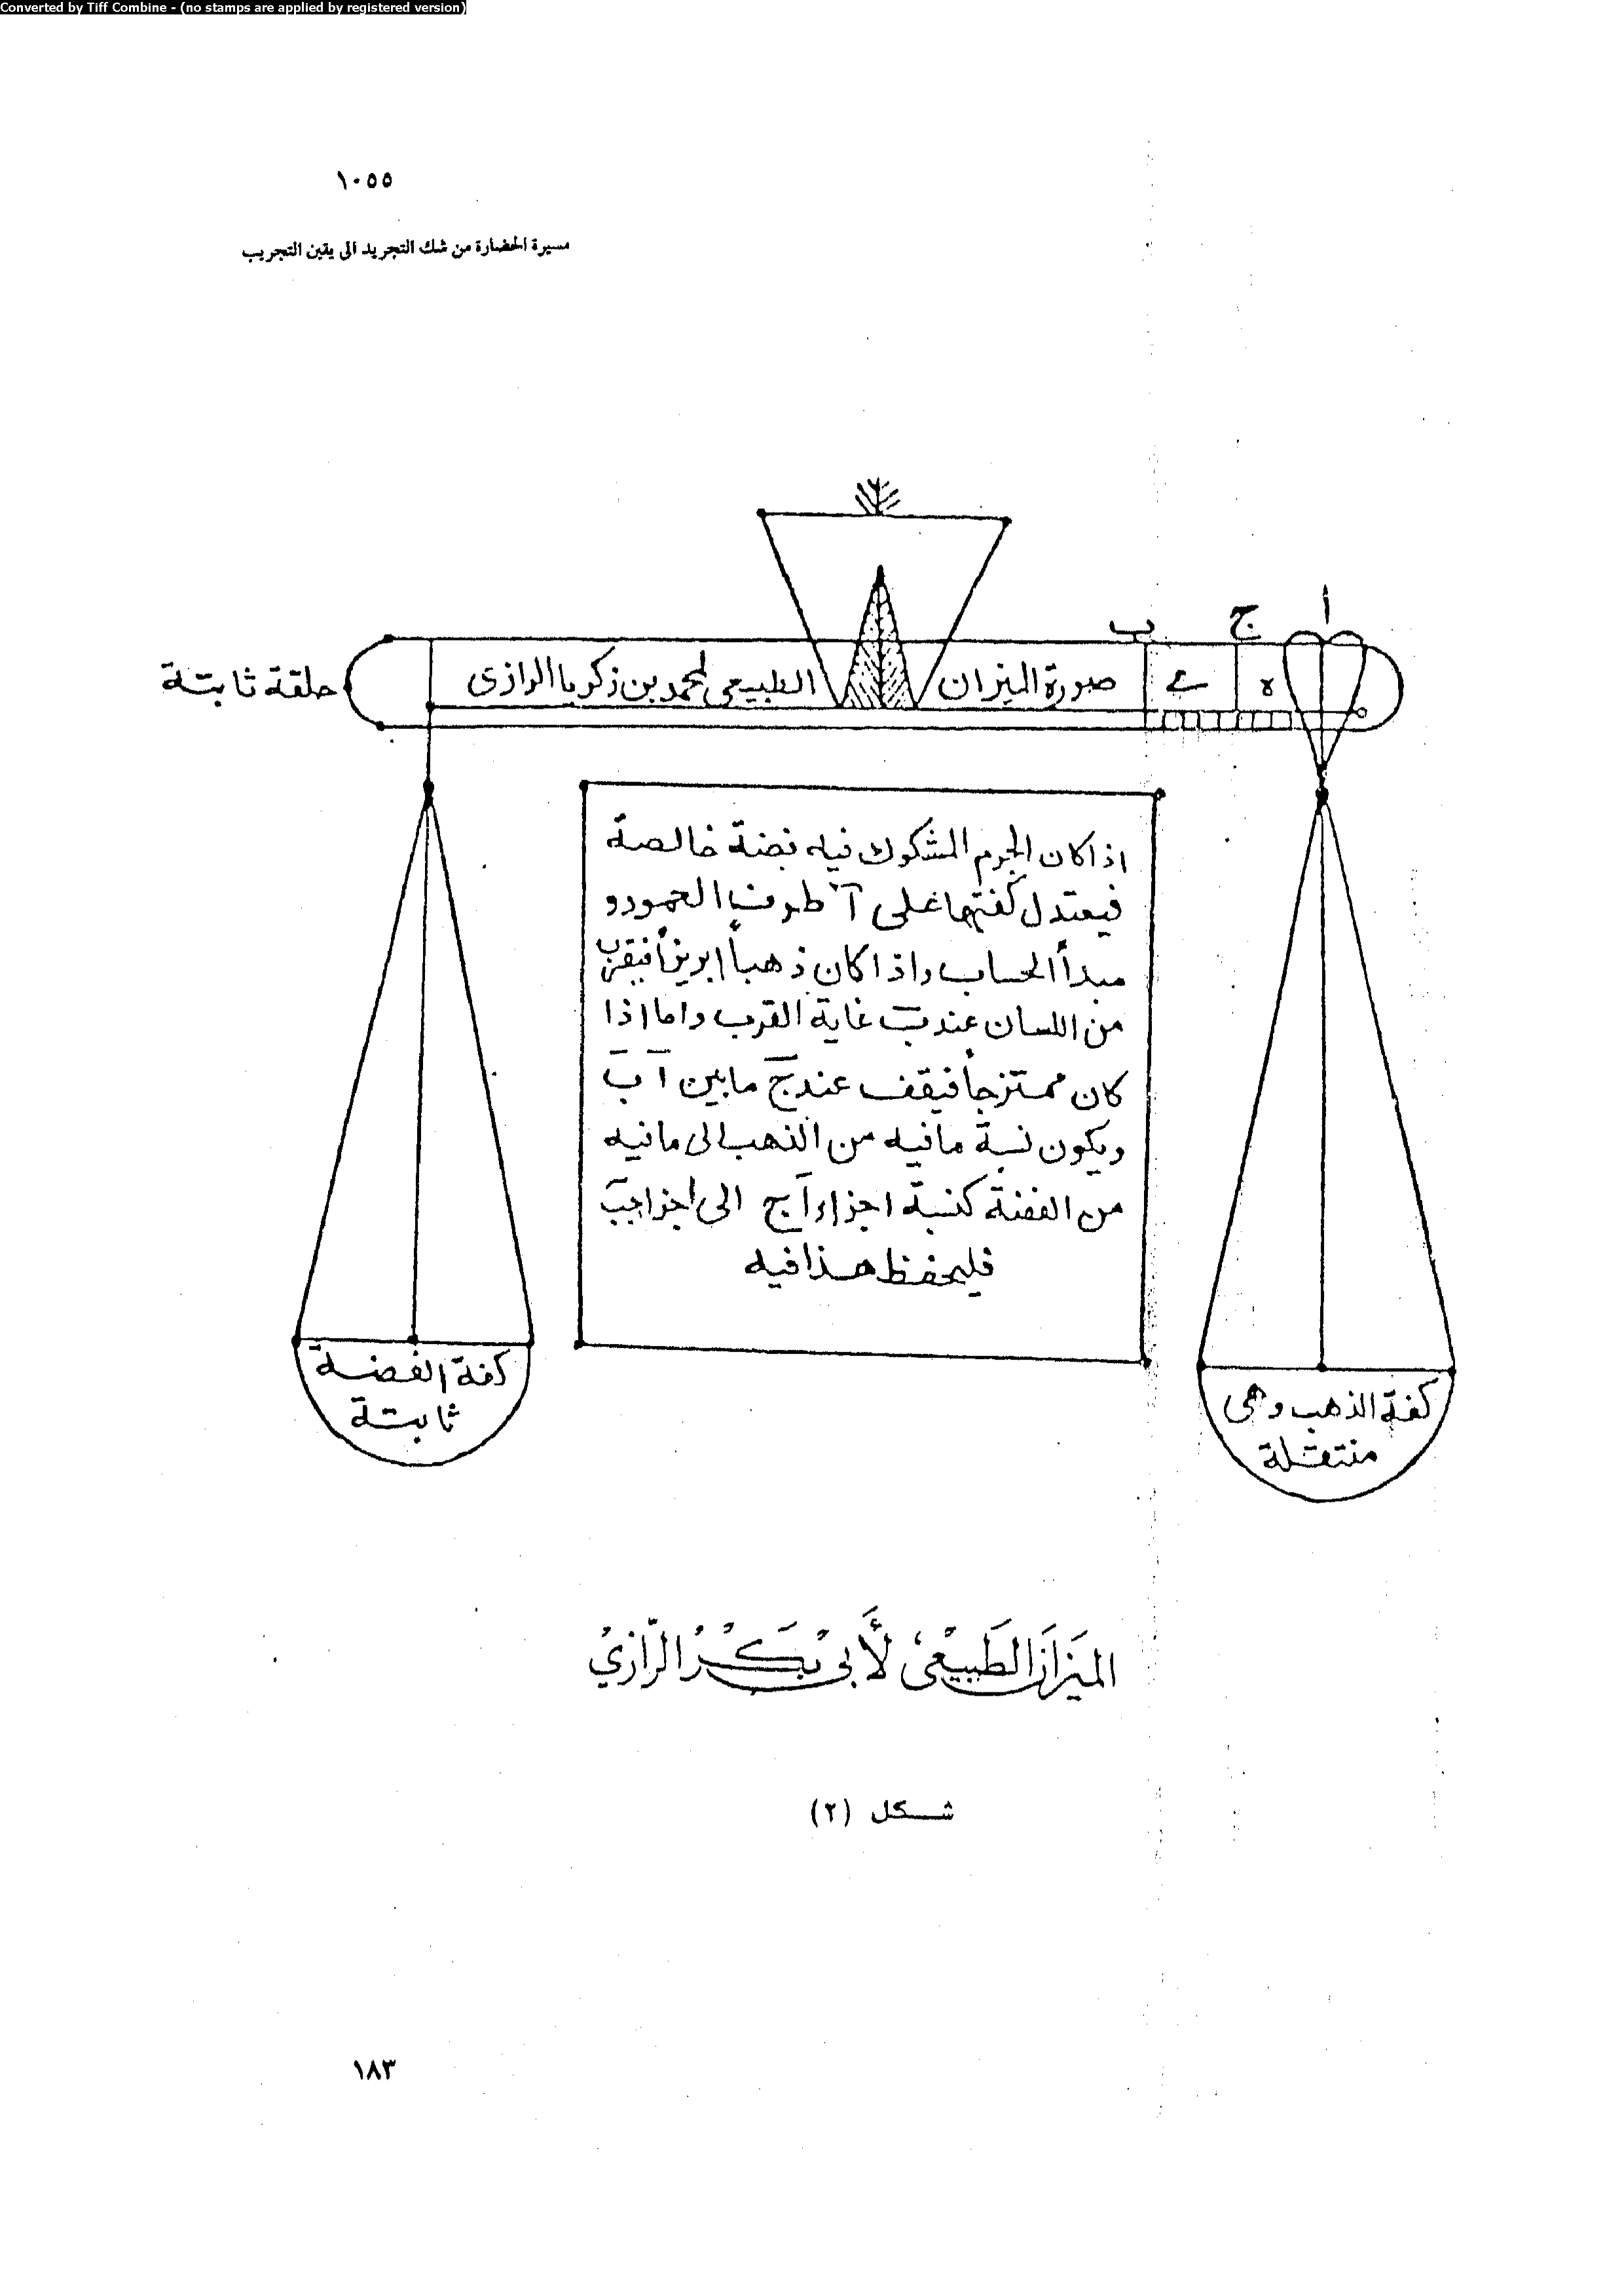 Converted by Tiff Combine - (no stamps are applied by registered version)
١٠٥٥
مسيرة الحضارة من شك التجريد الى يقين التجريب
ا
ج
ب
ه
صورة الميزان الطبيعى لمحمد بن زكريا الرازى
حلقة ثابتة
اذا كان الجرم المشكوك فيه فضة خالصة
فيعتدل كفتها على آ طرف العمود و
مبدأ الحساب واذا كان ذهباً ابريزاً فيقرب
من اللسان عند ب غاية القرب واما اذا
كان ممتزجاً فيقف عند ج ما بين آ ب
ويكون نسبة ما فيه من الذهب الى ما فيه
من الفضة كنسبة اجزاء آج الى اجزا جب
فليحفظ هذا فيه
كفة الفضة
ثابتة
كفة الذهب وهى
منتقلة
الميزان الطبيعى لأبى بكر الرازي
شكل (٢)
١٨٣